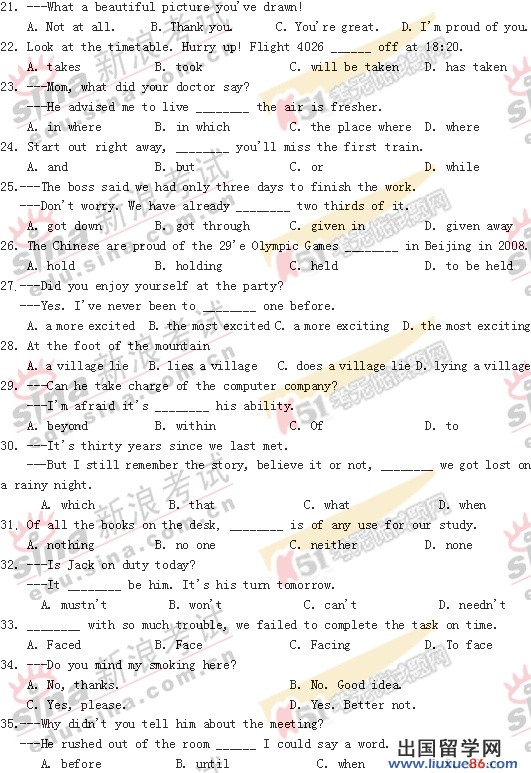 21. ---What a beautiful picture you've drawn!
A. Not at all. B. Thank you. C. You're great. D. I'm proud of you.
22. Look at the timetable. Hurry up! Flight 4026 ______ off at 18:20.
A. takes B. took C. will be taken D. has taken
23. ---Mom, what did your doctor say?
---He advised me to live ________ the air is fresher.
A. in where B. in which C. the place where D. where
24. Start out right away, ________ you'll miss the first train.
A. and B. but C. or D. while
25.---The boss said we had only three days to finish the work.
---Don't worry. We have already ________ two thirds of it.
A. got down B. got through C. given in D. given away
26. The Chinese are proud of the 29'e Olympic Games ________ in Beijing in 2008.
A. hold B. holding C. held D. to be held
27.---Did you enjoy yourself at the party?
---Yes. I've never been to ________ one before.
A. a more excited B. the most excited C. a more exciting D. the most exciting
28. At the foot of the mountain
A. a village lie B. lies a village C. does a village lie D. lying a village
29. ---Can he take charge of the computer company?
---I'm afraid it's ________ his ability.
A. beyond B. within C. Of D. to
30. ---It's thirty years since we last met.
---But I still remember the story, believe it or not, ________ we got lost on
a rainy night.
A. which B. that C. what D. when
31. Of all the books on the desk, ________ is of any use for our study.
A. nothing B. no one C. neither D. none
32. ---Is Jack on duty today?
---It ________ be him. It's his turn tomorrow.
A. mustn't B. won't C. can't D. needn't
33. ________ with so much trouble, we failed to complete the task on time.
A. Faced B. Face C. Facing D. To face
34. ---Do you mind my smoking here?
A. No, thanks. B. No. Good idea.
C. Yes, please. D. Yes. Better not.
35.---Why didn't you tell him about the meeting?
---He rushed out of the room ______ I could say a word.
A. before B. until C. when
出国留学网
www.liuxue86.com